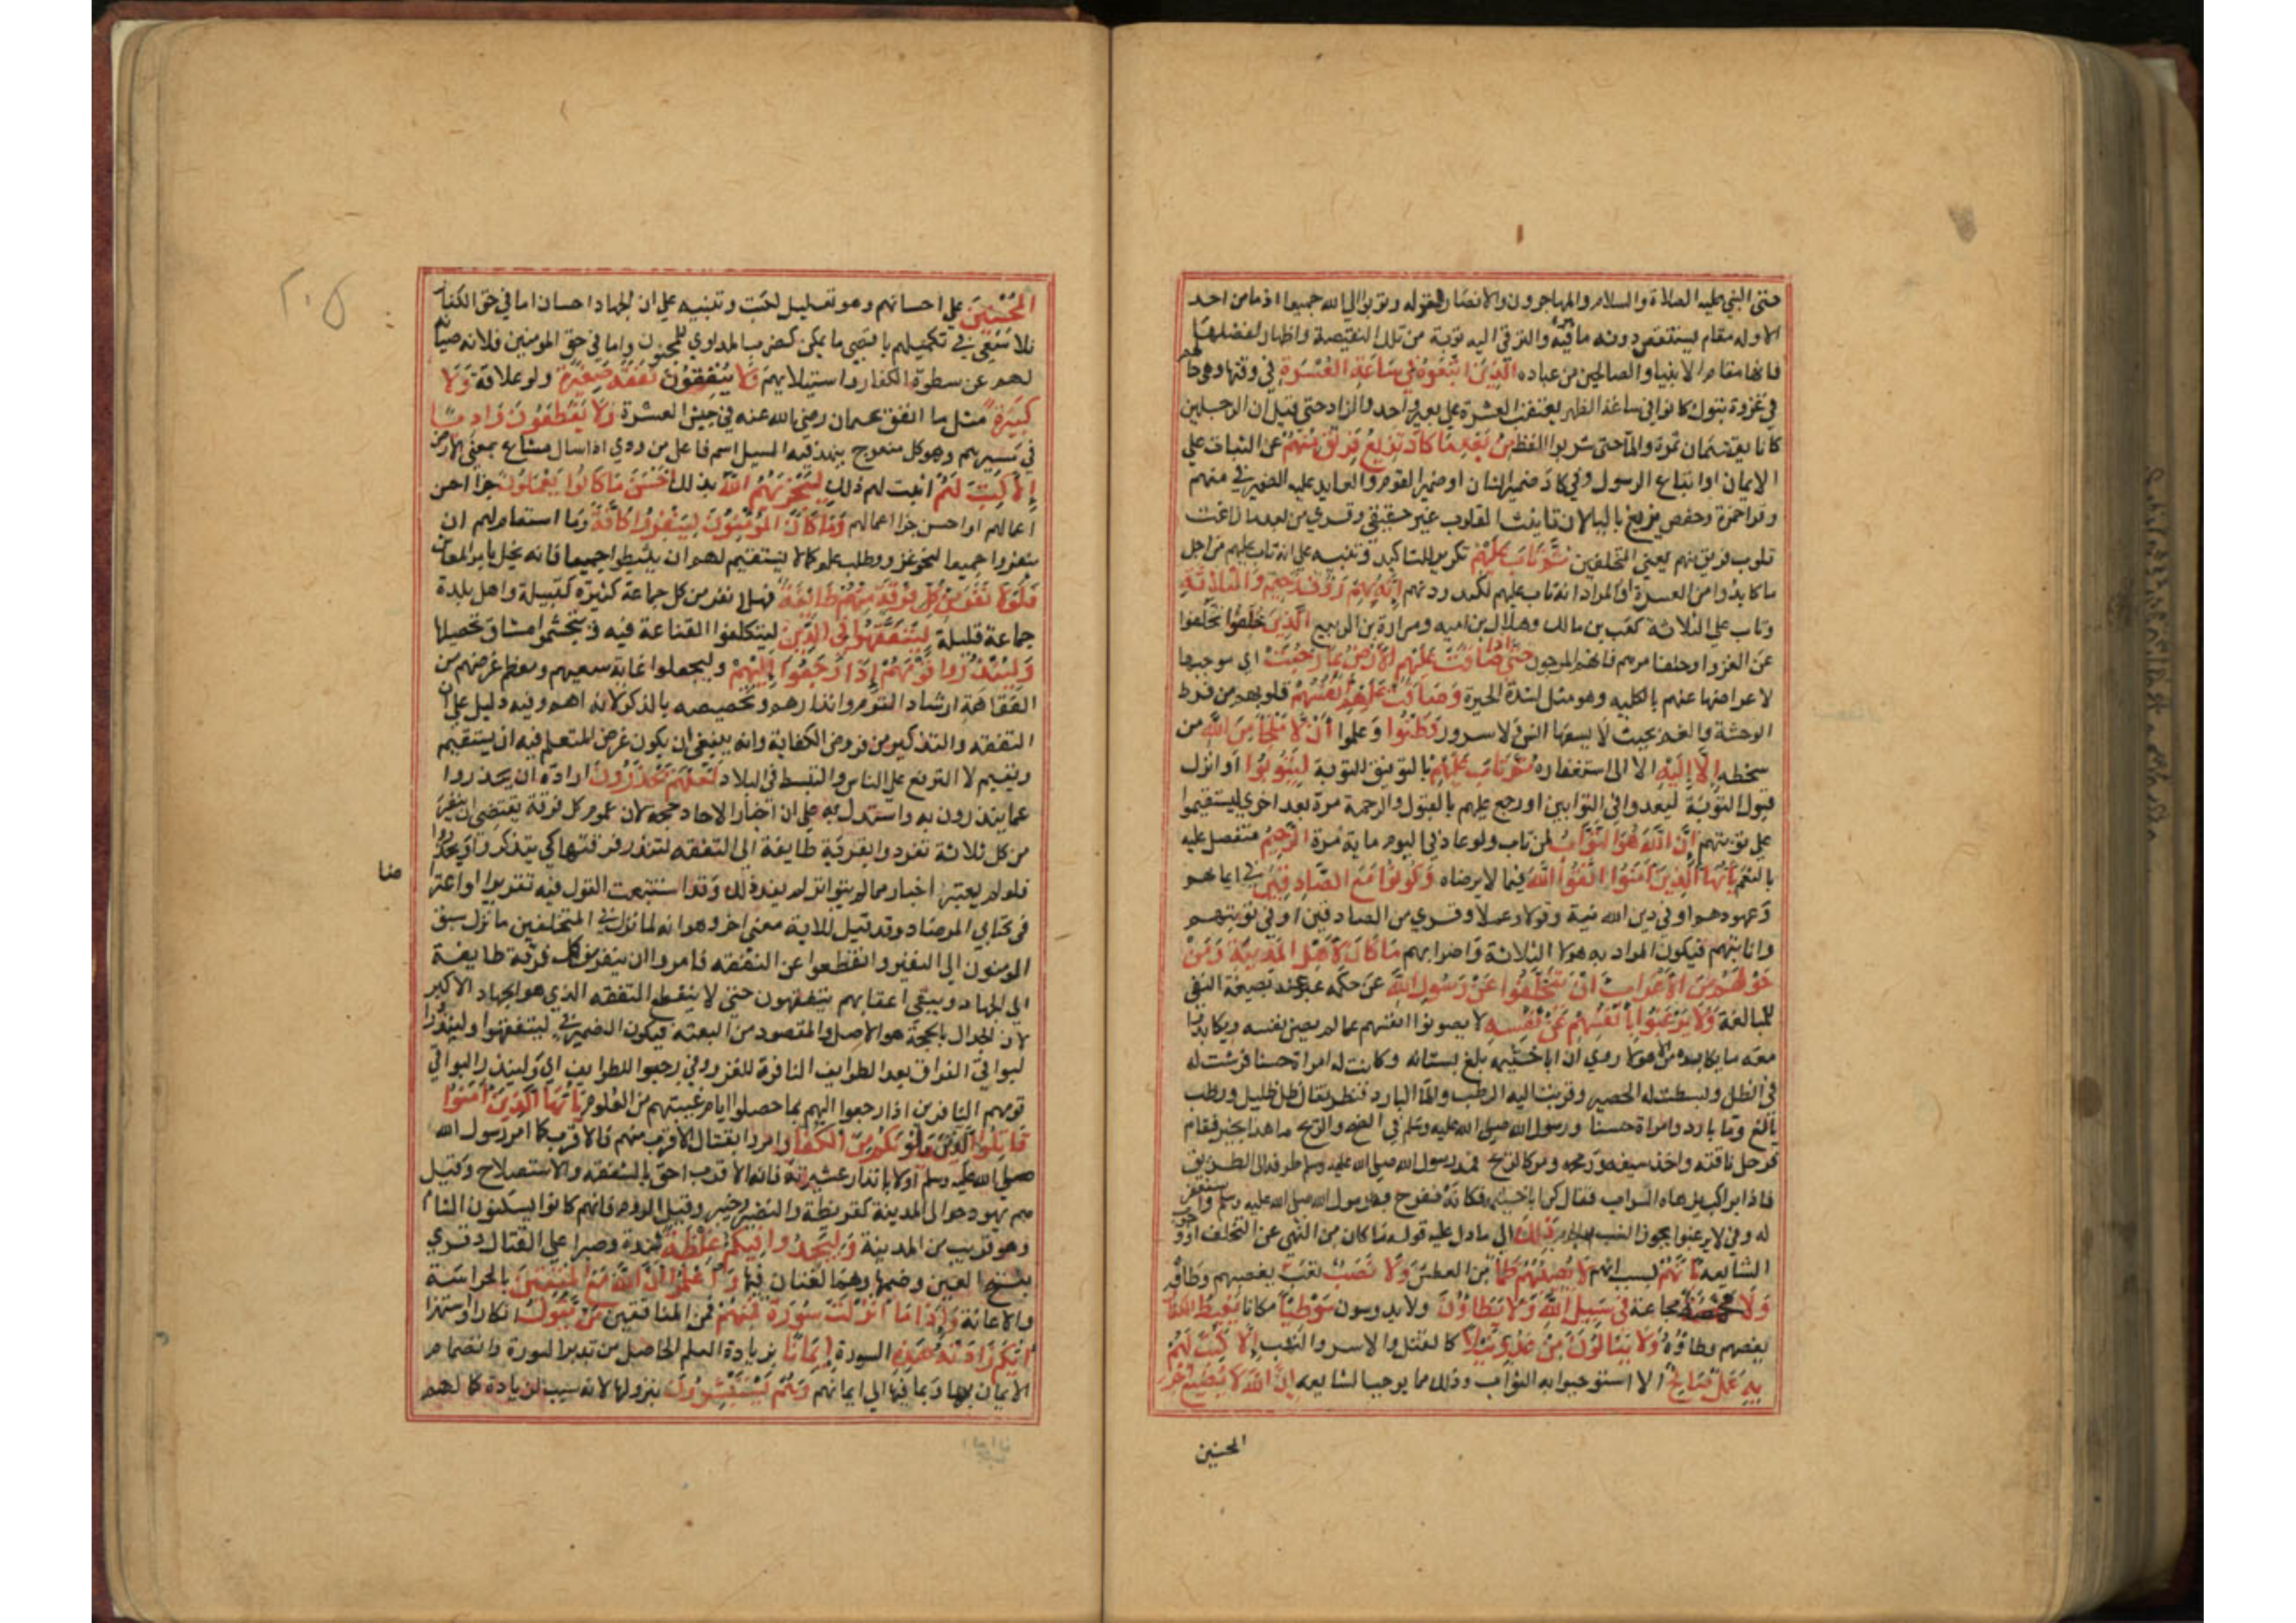 حتى النبي عليه الصلاة والسلام والمهاجرون والانصار لقوله وتوبوا الى الله جميعا اذ ما من احد
الا وله مقام يستنقص دونه ما فيه والترقي اليه توبة من تلك النقيصة واظهار لفضلها
فانها مقام الانبياء والصالحين من عباده الَّذِينَ اتَّبَعُوهُ فِي سَاعَةِ الْعُسْرَةِ في وقتها وهي حالهم
في غزوة تبوك كانوا في ساعة الظهر يعتقب العشرة على بعير واحد والزاد حتى قيل ان الرجلين
كانا يقتسمان تمرة والماء حتى شربوا الفظ مِنْ بَعْدِ مَا كَادَ تَزِيغُ قُلُوبُ فَرِيقٍ مِنْهُمْ عن الثبات على
الايمان او اتباع الرسول وفي كاد ضمير الشان او ضمير القوم والعايد عليه الضمير في منهم
وقرا حمزة وحفص يزيغ بالياء لان تانيث القلوب غير حقيقي وقري من بعد ما زاغت
قلوب فريق منهم يعني المتخلفين ثُمَّ تَابَ عَلَيْهِمْ تكرير للتاكيد وتنبيه على انه تاب عليهم من اجل
ما كابدوا من العسرة او المراد انه تاب عليهم لكيدودتهم إِنَّهُ بِهِمْ رَؤُفٌ رَحِيمٌ وَعَلَى الثَّلَاثَةِ
وتاب على الثلاثة كعب بن مالك وهلال بن اميه ومرارة بن الربيع الَّذِينَ خُلِّفُوا تخلفوا
عن الغزو او خلف امرهم فانهم المرجون حَتَّى إِذَا ضَاقَتْ عَلَيْهِمُ الْأَرْضُ بِمَا رَحُبَتْ اي برحبها
لاعراضها عنهم بالكليه وهو مثل لشدة الحيرة وَضَاقَتْ عَلَيْهِمْ أَنْفُسُهُمْ قلوبهم من فرط
الوحشة والغم بحيث لا يسعها انس ولا سرور وَظَنُّوا وعلموا أَنْ لَا مَلْجَأَ مِنَ اللَّهِ من
سخطه إِلَّا إِلَيْهِ الا الى استغفاره ثُمَّ تَابَ عَلَيْهِمْ بالتوفيق للتوبة لِيَتُوبُوا او انزل
قبول التوبة ليعدوا في التوابين او رجع عليهم بالقبول والرحمة مرة بعد اخري ليستقيموا
على توبتهم إِنَّ اللَّهَ هُوَ التَّوَّابُ لمن تاب ولو عاد في اليوم ماية مرة الرَّحِيمُ متفضل عليه
بالنعم يَا أَيُّهَا الَّذِينَ آمَنُوا اتَّقُوا اللَّهَ فيما لا يرضاه وَكُونُوا مَعَ الصَّادِقِينَ في ايمانهم
وعهودهم او في دين الله نية وقولا وعملا وقري من الصادقين اي في توبتهم
وانابتهم فيكون المراد به هولاء الثلاثة واضرابهم مَا كَانَ لِأَهْلِ الْمَدِينَةِ وَمَنْ
حَوْلَهُمْ مِنَ الْأَعْرَابِ أَنْ يَتَخَلَّفُوا عَنْ رَسُولِ اللَّهِ عن حكمه عبر عنه بصيغة النفي
للمبالغة وَلَا يَرْغَبُوا بِأَنْفُسِهِمْ عَنْ نَفْسِهِ لا يصونوا انفسهم عما لم يصن نفسه ويكابدوا
معه ما يكابده من الاهوال روي ان ابا خيثمه بلغ بستانه وكانت له امراة حسنا فرشت له
في الظل وبسطت له الحصير وقربت اليه الرطب والماء البارد فنظر فقال ظل ظليل ورطب
يانع وماء بارد وامراة حسنا ورسول الله صلى الله عليه وسلم في الضح والريح ما هذا بخير فقام
فرحل ناقته واخذ سيفه ورمحه ومر كالريح فمد رسول الله صلى الله عليه وسلم طرفه الى الطريق
فاذا براكب يزهاه السراب فقال كن ابا خيثمه فكانه ففرح به رسول الله صلى الله عليه وسلم واستغفر
له وفي لا يرغبوا يجوز النصب والجزم ذَلِكَ الى ما دل عليه قوله ما كان من النهي عن التخلف او وجوب
الشايعه بِأَنَّهُمْ بسبب انهم لَا يُصِيبُهُمْ ظَمَأٌ من العطش وَلَا نَصَبٌ تعب
وَلَا مَخْمَصَةٌ مجاعة فِي سَبِيلِ اللَّهِ وَلَا يَطَئُونَ ولا يدوسون مَوْطِئًا مكانا يَغِيظُ الْكُفَّارَ
يغضبهم وطاؤه وَلَا يَنَالُونَ مِنْ عَدُوٍّ نَيْلًا كالقتل والاسر والنهب إِلَّا كُتِبَ لَهُمْ
بِهِ عَمَلٌ صَالِحٌ الا استوجبوا به الثواب وذلك مما يوجب المشايعه إِنَّ اللَّهَ لَا يُضِيعُ أَجْرَ
المحسنين
٢٠٥
الْمُحْسِنِينَ على احسانهم وهو تعليل لكتب وتنبيه على ان الجهاد احسان اما في حق الكفار
فلانه سعي في تكميلهم باقصى ما يمكن كضرب المداوي للمجنون واما في حق المومنين فلانه صيانة
لهم عن سطوة الكفار واستيلايهم وَلَا يُنْفِقُونَ نَفَقَةً صَغِيرَةً ولو علاقة وَلَا
كَبِيرَةً مثل ما انفق عثمان رضي الله عنه في جيش العسرة وَلَا يَقْطَعُونَ وَادِيًا
في مسيرهم وهو كل منعرج ينفذ فيه السيل اسم فاعل من ودي اذا سال فشاع بمعنى الارض
إِلَّا كُتِبَ لَهُمْ اثبت لهم ذلك لِيَجْزِيَهُمُ اللَّهُ بذلك أَحْسَنَ مَا كَانُوا يَعْمَلُونَ جزا احسن
اعمالهم او احسن جزا اعمالهم وَمَا كَانَ الْمُؤْمِنُونَ لِيَنْفِرُوا كَافَّةً وما استقام لهم ان
ينفروا جميعا لنحو غزو وطلب علم كما لا يستقيم لهم ان يثبطوا جميعا فانه يخل بامر المعاش
فَلَوْلَا نَفَرَ مِنْ كُلِّ فِرْقَةٍ مِنْهُمْ طَائِفَةٌ فهلا نفر من كل جماعة كثيرة كقبيلة واهل بلدة
جماعة قليلة لِيَتَفَقَّهُوا فِي الدِّينِ ليتكلفوا الفقاهة فيه ويتجشموا مشاق تحصيلها
وَلِيُنْذِرُوا قَوْمَهُمْ إِذَا رَجَعُوا إِلَيْهِمْ وليجعلوا غاية سعيهم ومعظم غرضهم من
الفقاهة ارشاد القوم وانذارهم وتخصيصه بالذكر لانه اهم وفيه دليل على ان
التفقه والتذكير من فروض الكفاية وانه ينبغي ان يكون غرض المتعلم فيه ان يستقيم
ويقيم لا الترفع على الناس والتبسط في البلاد لَعَلَّهُمْ يَحْذَرُونَ ارادة ان يحذروا
عما ينذرون به واستدل به على ان اخبار الاحاد حجة لان عموم كل فرقة يقتضي ان ينفر
من كل ثلاثة تفردوا بقرية طايفة الى التفقه لتنذر فرقتها كي يتذكروا ويحذروا
فلو لم يعتبر اخبار ما لم يتواتر لم يفد ذلك وقد استتبعت القول فيه تقريرا واعتراضا
في كتابي المرصاد وقد قيل للاية معنى اخر وهو انه لما نزل في المتخلفين ما نزل سبق
المومنون الى النفير وانقطعوا عن التفقه فامروا ان ينفر من كل فرقة طايفة
الى الجهاد ويبقى اعقابهم يتفقهون حتى لا ينقطع التفقه الذي هو الجهاد الاكبر
لان الجدال بالحجة هو الاصل والمقصود من البعثه فيكون الضمير في ليتفقهوا ولينذروا
لبواقي الفراق بعد الطوايف النافرة للغزو وفي رجعوا للطوايف اي ولينذر البواقي
قومهم النافرين اذا رجعوا اليهم بما حصلوا ايام غيبتهم من العلوم يَا أَيُّهَا الَّذِينَ آمَنُوا
قَاتِلُوا الَّذِينَ يَلُونَكُمْ مِنَ الْكُفَّارِ امروا بقتال الاقرب منهم فالاقرب كما امر رسول الله
صلى الله عليه وسلم اولا بانذار عشيرته فان الاقرب احق بالشفقه والاستصلاح وقيل
هم يهود حوالي المدينة كقريظة والنضير وخيبر وقيل الروم فانهم كانوا يسكنون الشام
وهو قريب من المدينة وَلْيَجِدُوا فِيكُمْ غِلْظَةً شدة وصبرا على القتال وقري
بفتح الغين وضمها وهما لغتان فيها وَاعْلَمُوا أَنَّ اللَّهَ مَعَ الْمُتَّقِينَ بالحراسة
والاعانة وَإِذَا مَا أُنْزِلَتْ سُورَةٌ فَمِنْهُمْ فمن المنافقين مَنْ يَقُولُ انكارا واستهزا
أَيُّكُمْ زَادَتْهُ هَذِهِ السورة إِيمَانًا بزيادة العلم الحاصل من تدبر السورة وانضمام
الايمان بها وبما فيها الى ايمانهم وَهُمْ يَسْتَبْشِرُونَ بنزولها لانه سبب لزيادة كمالهم